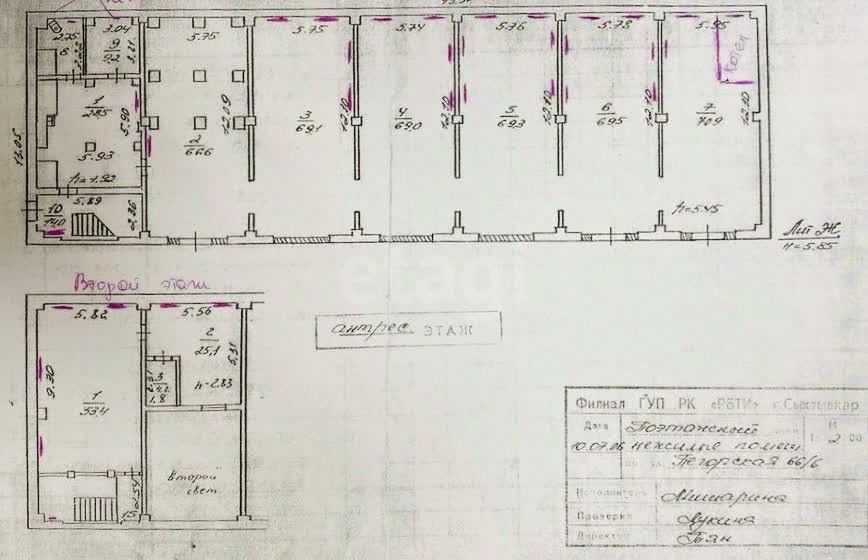 2.75
8
3.22
3.04
9
9.2
3.21
5.75
5.75
5.74
5.76
5.78
5.95
Котел
1
28.5
5.90
5.93
h=1.92
2
66.6
12.09
3
69.1
12.10
4
69.0
12.10
5
69.3
12.10
6
69.5
12.10
7
70.9
12.10
13.05
5.89
10
14.0
2.36
h=5.45
Лит Ж
H=5.85
Второй этаж
5.82
9.30
1
53.4
2.54
5.56
2
25.1
5.31
h=2.83
3
4.2
2.31
1.8
Второй
свет
антрес. ЭТАЖ
etagi
Филиал ГУП РК «РБТИ» г.Сыктывкар
Дата
Поэтажный
М
10.07.06 нежилые помещ.
1: 200
Печорская 66/6
Исполнитель Мишарина
Проверил Лукина
Директор Тян